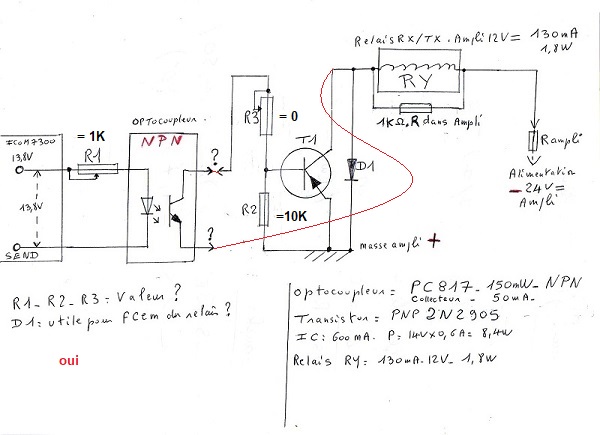 Relais RX/TX. Ampli 12V = 130mA
1,8W
RY
1KΩ. R dans Ampli
OPTOCOUPLEUR
NPN
ICOM7300
13,8V
= 1K
R1
13,8V
SEND
?
?
R3
= 0
T1
R2
=10K
D1
R ampli
Alimentation
- 24V =
Ampli
masse ampli +
R1_ R2_ R3 = Valeur ?
D1 = utile pour FCEM du relais ?
oui
Optocoupleur = PC817_ 150mW_ NPN
Collecteur _ 50mA_
Transistor = PNP 2N2905
IC: 600mA. P= 14V x 0,6A = 8,4W
Relais RY = 130mA. 12V_ 1,8W